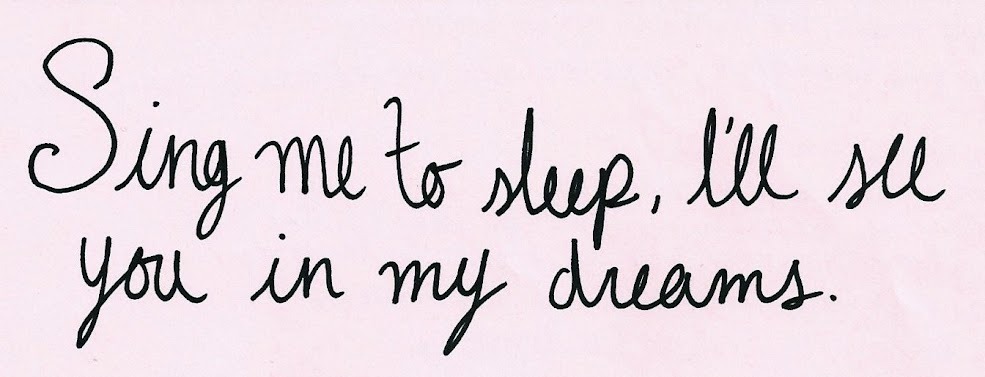 Sing me to sleep, I'll see
you in my dreams.